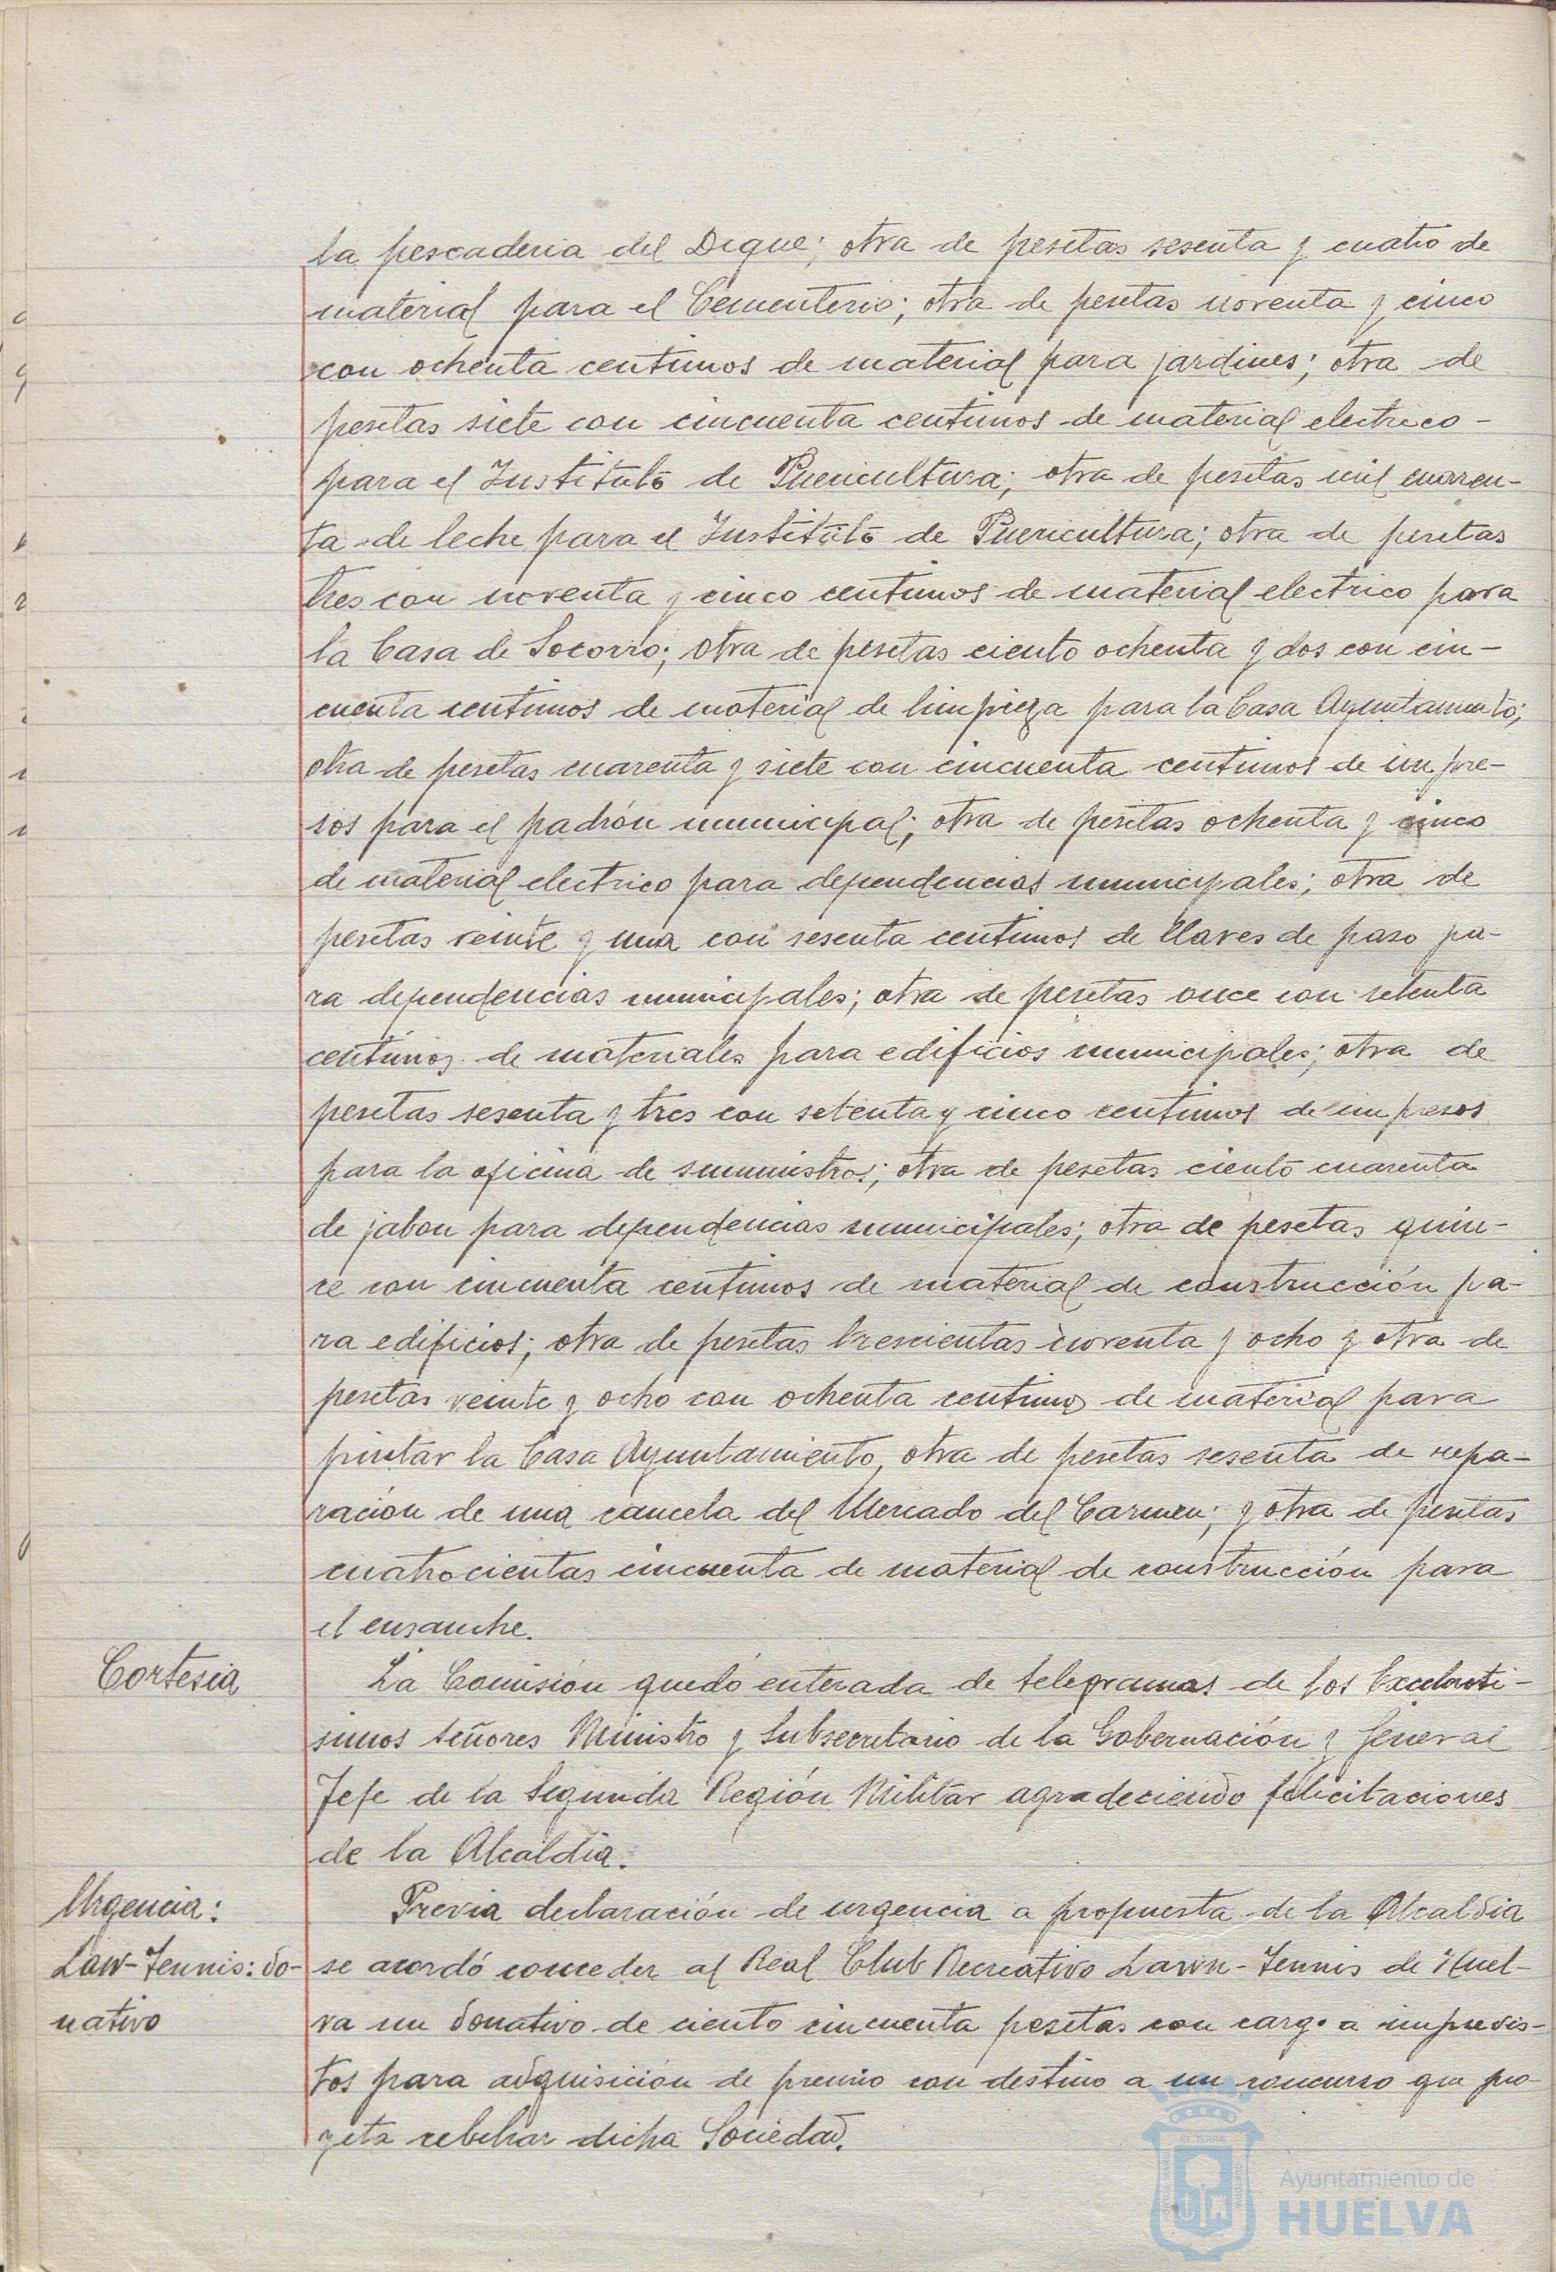 la pescaderia del Dique; otra de pesetas sesenta y cuatro de
material para el Cementerio; otra de pesetas noventa y cinco
con ochenta centimos de material para jardines; otra de
pesetas siete con cincuenta centimos de material electrico-
para el Instituto de Puericultura; otra de pesetas mil cuaren-
ta de leche para el Instituto de Puericultura; otra de pesetas
tres con noventa y cinco centimos de material electrico para
la Casa de Socorro; otra de pesetas ciento ochenta y dos con cin-
cuenta centimos de material de limpieza para la Casa Ayuntamiento;
otra de pesetas cuarenta y siete con cincuenta centimos de impre-
sos para el padrón municipal; otra de pesetas ochenta y cinco
de material electrico para dependencias municipales; otra de
pesetas veinte y una con sesenta centimos de llaves de paso pa-
ra dependencias municipales; otra de pesetas once con setenta
centimos de materiales para edificios municipales; otra de
pesetas sesenta y tres con setenta y cinco centimos de impresos
para la oficina de suministros; otra de pesetas ciento cuarenta
de jabon para dependencias municipales; otra de pesetas quin-
ce con cincuenta centimos de material de construcción pa-
ra edificios; otra de pesetas trescientas noventa y ocho y otra de
pesetas veinte y ocho con ochenta centimos de material para
pintar la Casa Ayuntamiento, otra de pesetas sesenta de repa-
ración de una cancela del Mercado del Carmen; y otra de pesetas
cuatrocientas cincuenta de material de construcción para
el ensanche.
Cortesia
La Comisión quedó enterada de telegramas de los Excelenti-
simos señores Ministro y Subsecretario de la Gobernación y General
Jefe de la Segunda Región Militar agradeciendo felicitaciones
de la Alcaldia.
Urgencia:
Law-Tennis: do-
nativo
Previa declaración de urgencia a propuesta de la Alcaldia
se acordó conceder al Real Club Recreativo Lawn-Tennis de Huel-
va un donativo de ciento cincuenta pesetas con cargo a imprevis-
tos para adquisición de premio con destino a un concurso que pro
yeta celebrar dicha Sociedad.
Ayuntamiento de
HUELVA